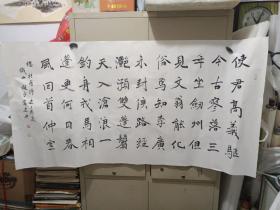 使君高義驅
今古寥落三
年坐劍州但
見文翁能化
俗焉知李廣
未封侯路經
灩澦雙蓬鬢
天入滄浪一
釣舟戎馬相
逢更何日春
風回首仲宣
樓